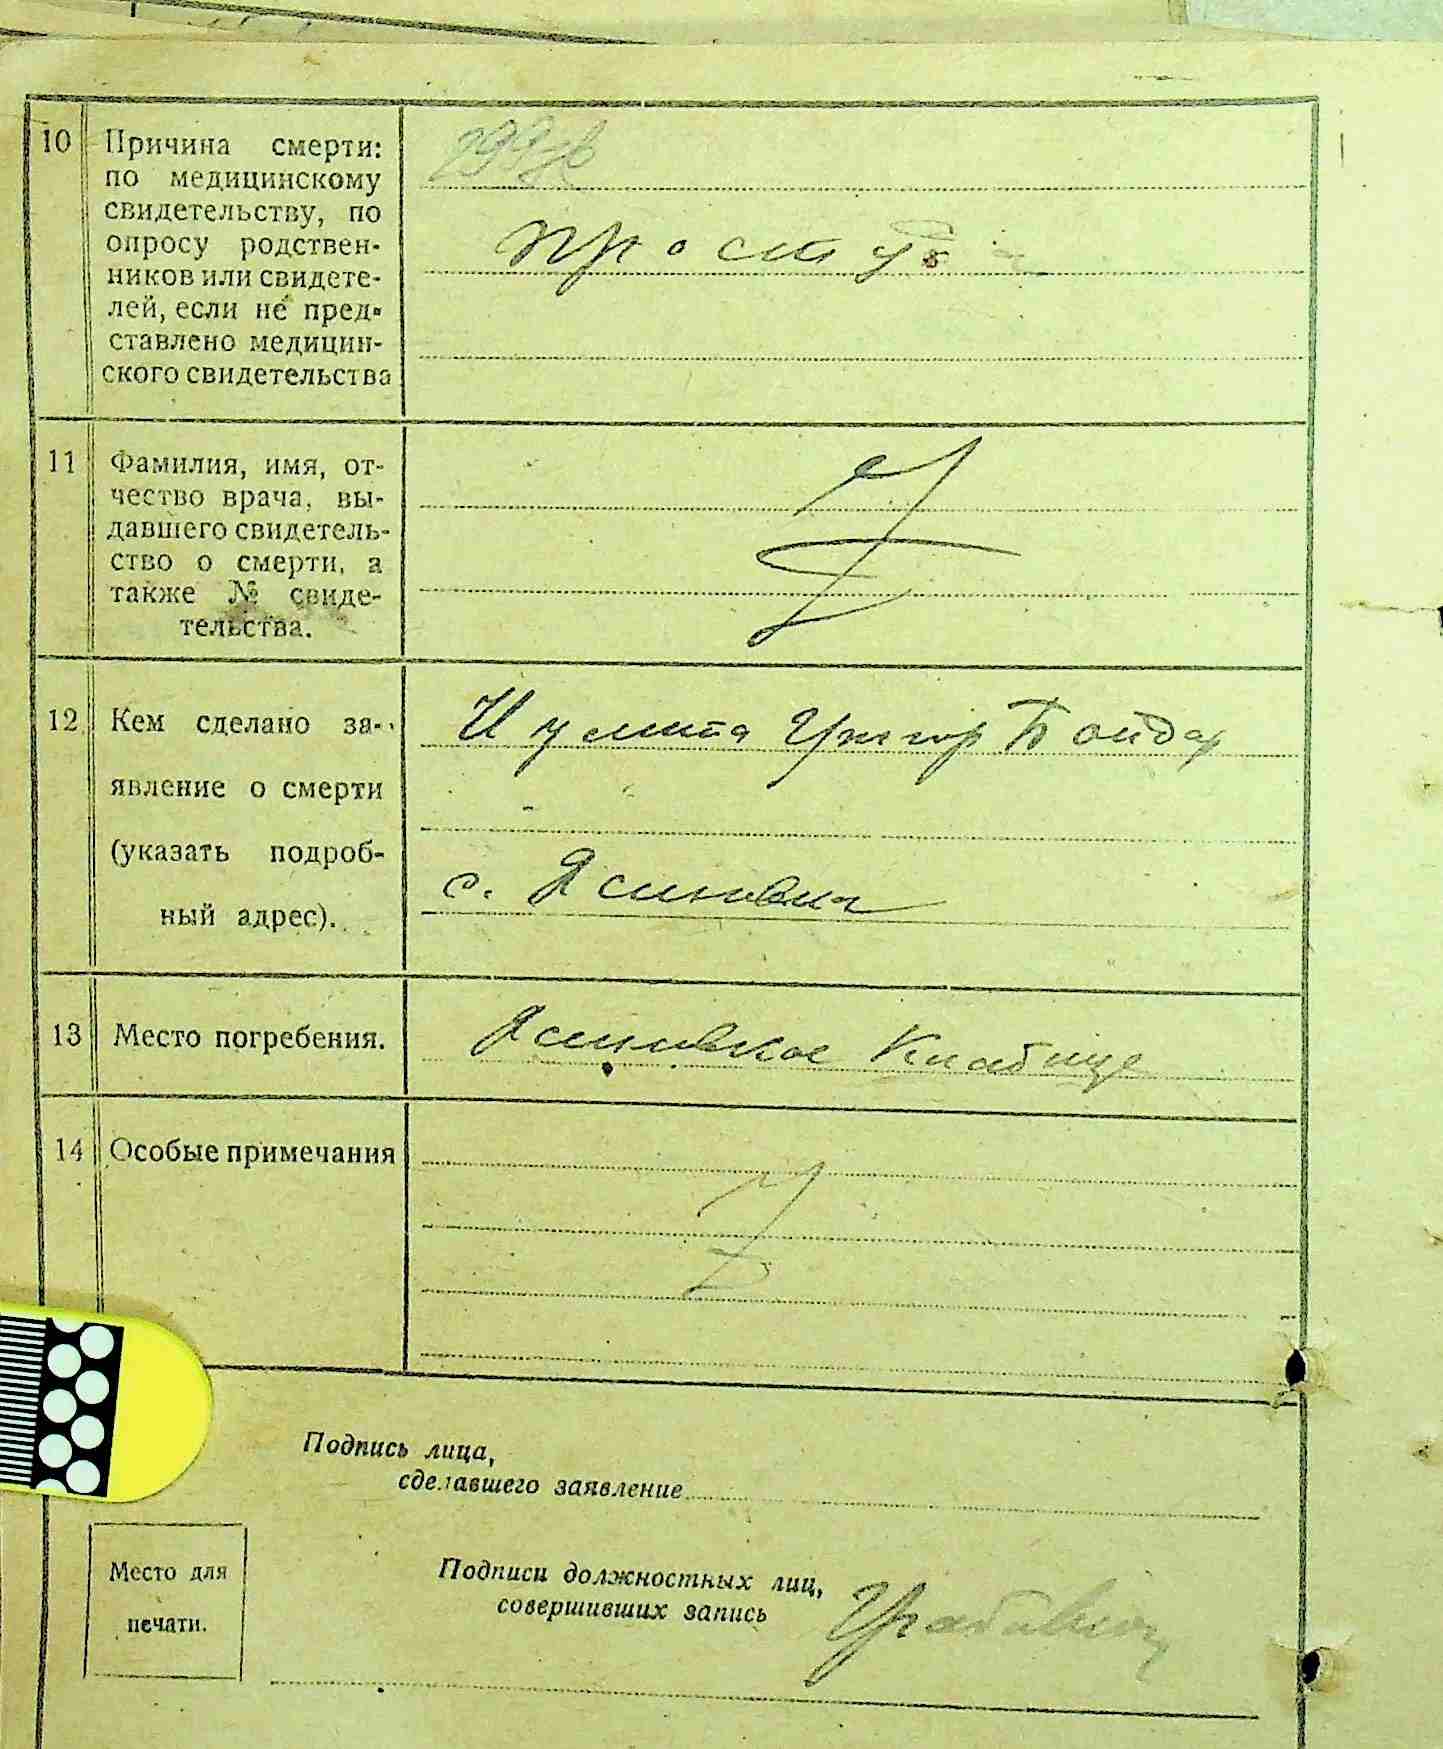 10 Причина смерти:
по медицинскому
свидетельству, по
опросу родствен-
ников или свидете-
лей, если не пред-
ставлено медицин-
ского свидетельства
простуда
11 Фамилия, имя, от-
чество врача, вы-
давшего свидетель-
ство о смерти, а
также № свиде-
тельства.
12 Кем сделано за-
явление о смерти
(указать подроб-
ный адрес).
Григор
с.
13 Место погребения.
14 Особые примечания
Подпись лица,
сделавшего заявление
Место для
печати.
Подписи должностных лиц,
совершивших запись